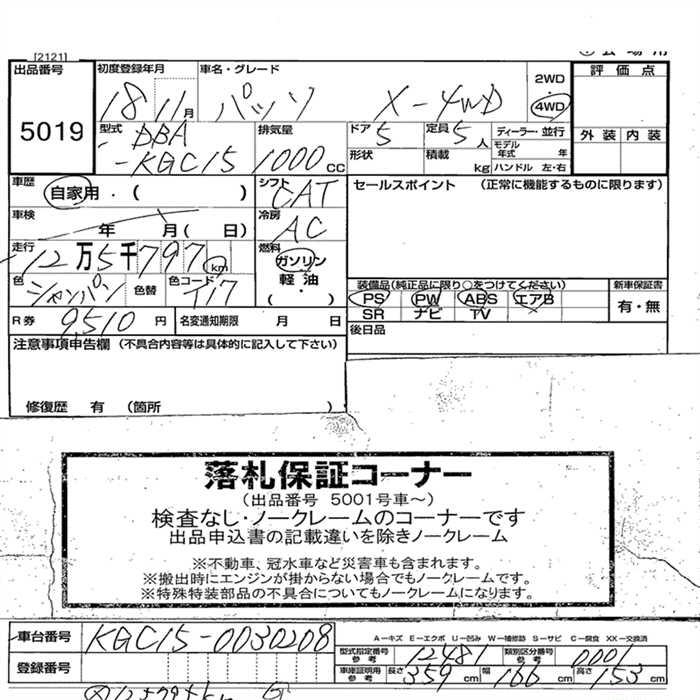 [2121]
出品番号 5019
初度登録年月 18 11月
車名・グレード パッソ X-4WD
2WD
4WD
評価点
外装 内装
型式 DBA-KGC15
排気量 1000cc
ドア 5
定員 5人
ディーラー・並行
形状
積載 kg
モデル年式 年
ハンドル 左・右
車歴 自家用・( )
シフト CAT
セールスポイント (正常に機能するものに限ります)
車検 年 月( 日)
冷房 AC
走行 12万5千797km
燃料 ガソリン
軽油
( )
色 シャンパン
色替
色コード T17
装備品(純正品に限り○をつけてください)
新車保証書
PS PW ABS エアB
有・無
SR ナビ TV
R券 9,510円
名変通知期限 月 日
後日品
注意事項申告欄 (不具合内容等は具体的に記入して下さい)
修復歴 有 (箇所 )
落札保証コーナー
(出品番号 5001号車～)
検査なし・ノークレームのコーナーです
出品申込書の記載違いを除きノークレーム
※不動車、冠水車など災害車も含まれます。
※搬出時にエンジンが掛からない場合でもノークレームです。
※特殊特装部品の不具合についてもノークレームになります。
車台番号 KGC15-0030208
A-キズ E-エクボ U-凹み W-補修跡 S-サビ C-腐食 XX-交換済
型式指定番号参考 12481
類別区分番号参考 0001
登録番号
車庫証明用参考 長さ 359cm 幅 166cm 高さ 153cm